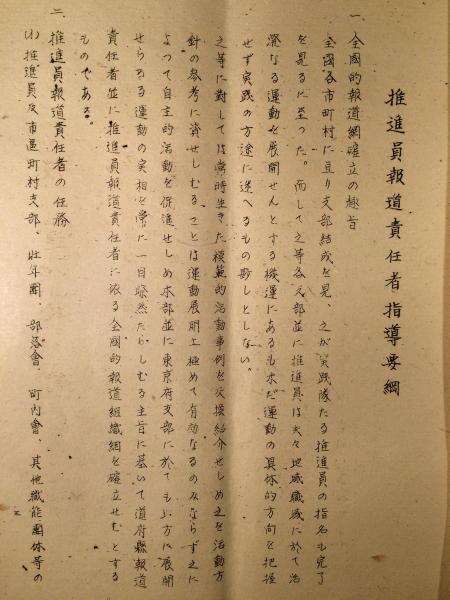 推進員報道責任者指導要綱
一、全國的報道網確立の趣旨
全國各市町村に亘り支部結成を見、之が実践隊たる推進員の指名も完了
を見るに至った。而して之等各支部並に推進員は夫々地域職域に於て活
溌なる運動を展開せんとする機運にあるも未だ運動の具体的方向を把握
せず実践の方途に迷へるもの尠しとしない。
之等に対しては常時生きた模範的活動事例を反覆紹介せしめ之を活動方
針の参考に資せしむることは運動展開上極めて有効なるのみならず之に
よつて自主的活動を促進せしめ本部並に東京府支部に於ても下方に展開
せらるる運動の実相を常に一目瞭然たらしむる主旨に基いて道府縣報道
責任者並に推進員報道責任者に依る全國的報道組織網を確立せむとする
ものである。
二、推進員報道責任者の任務
(イ)推進員及市區町村支部、壯年團、部落會、町内會、其他職能團体等の